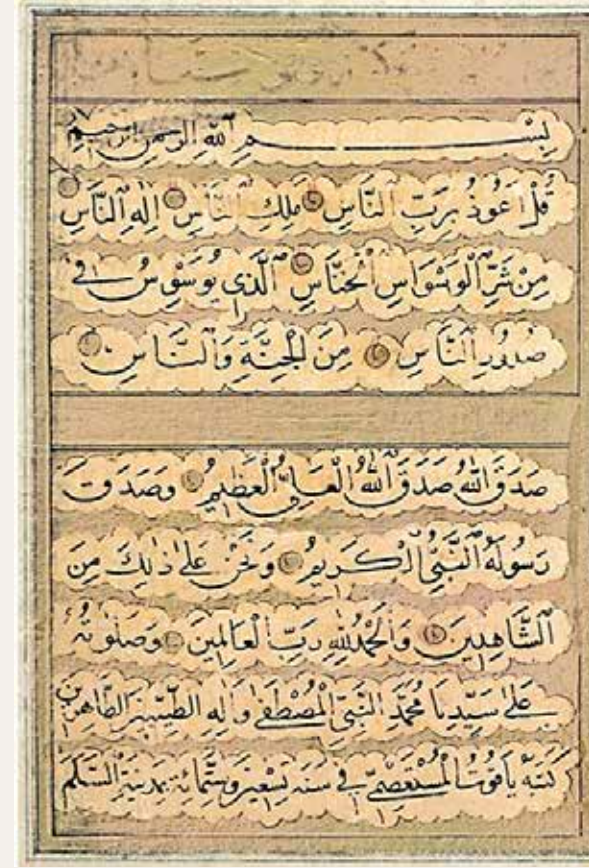 بِسْمِ ٱللَّهِ الرحمن الرحيم
قُلْ اَعُوذُ بِرَبِّ ٱلنَّاسِ مَلِكِ ٱلنَّاسِ اِلٰهِ ٱلنَّاسِ
مِنْ شَرِّ ٱلْوَسْوَاسِ ٱلْخَنَّاسِ ٱلَّذِى يُوَسْوِسُ فِى
صُدُورِ ٱلنَّاسِ مِنَ ٱلْجِنَّةِ وَٱلنَّاسِ
صَدَقَ ٱللَّهُ صَدَقَ ٱللَّهُ ٱلْعَلِىُّ ٱلْعَظِيمُ وَصَدَقَ
رَسُولُهُ ٱلنَّبِىُّ ٱلْكَرِيمُ وَنَحْنُ عَلىٰ ذٰلِكَ مِنَ
ٱلشَّاهِدِينَ وَٱلْحَمْدُ لِلَّهِ رَبِّ ٱلْعَالَمِينَ وَصَلَوٰتُهُ
عَلىٰ سَيِّدِنَا مُحَمَّدٍ ٱلنَّبِىِّ ٱلْمُصْطَفىٰ وَاٰلِهِ ٱلطَّيِّبِينَ ٱلطَّاهِرِينَ
كَتَبَهُ يَاقُوتُ ٱلْمُسْتَعْصِمِىُّ فِى سَنَةِ تِسْعِينَ وَسِتِّمِائَةٍ بِمَدِينَةِ ٱلسَّلَمِ